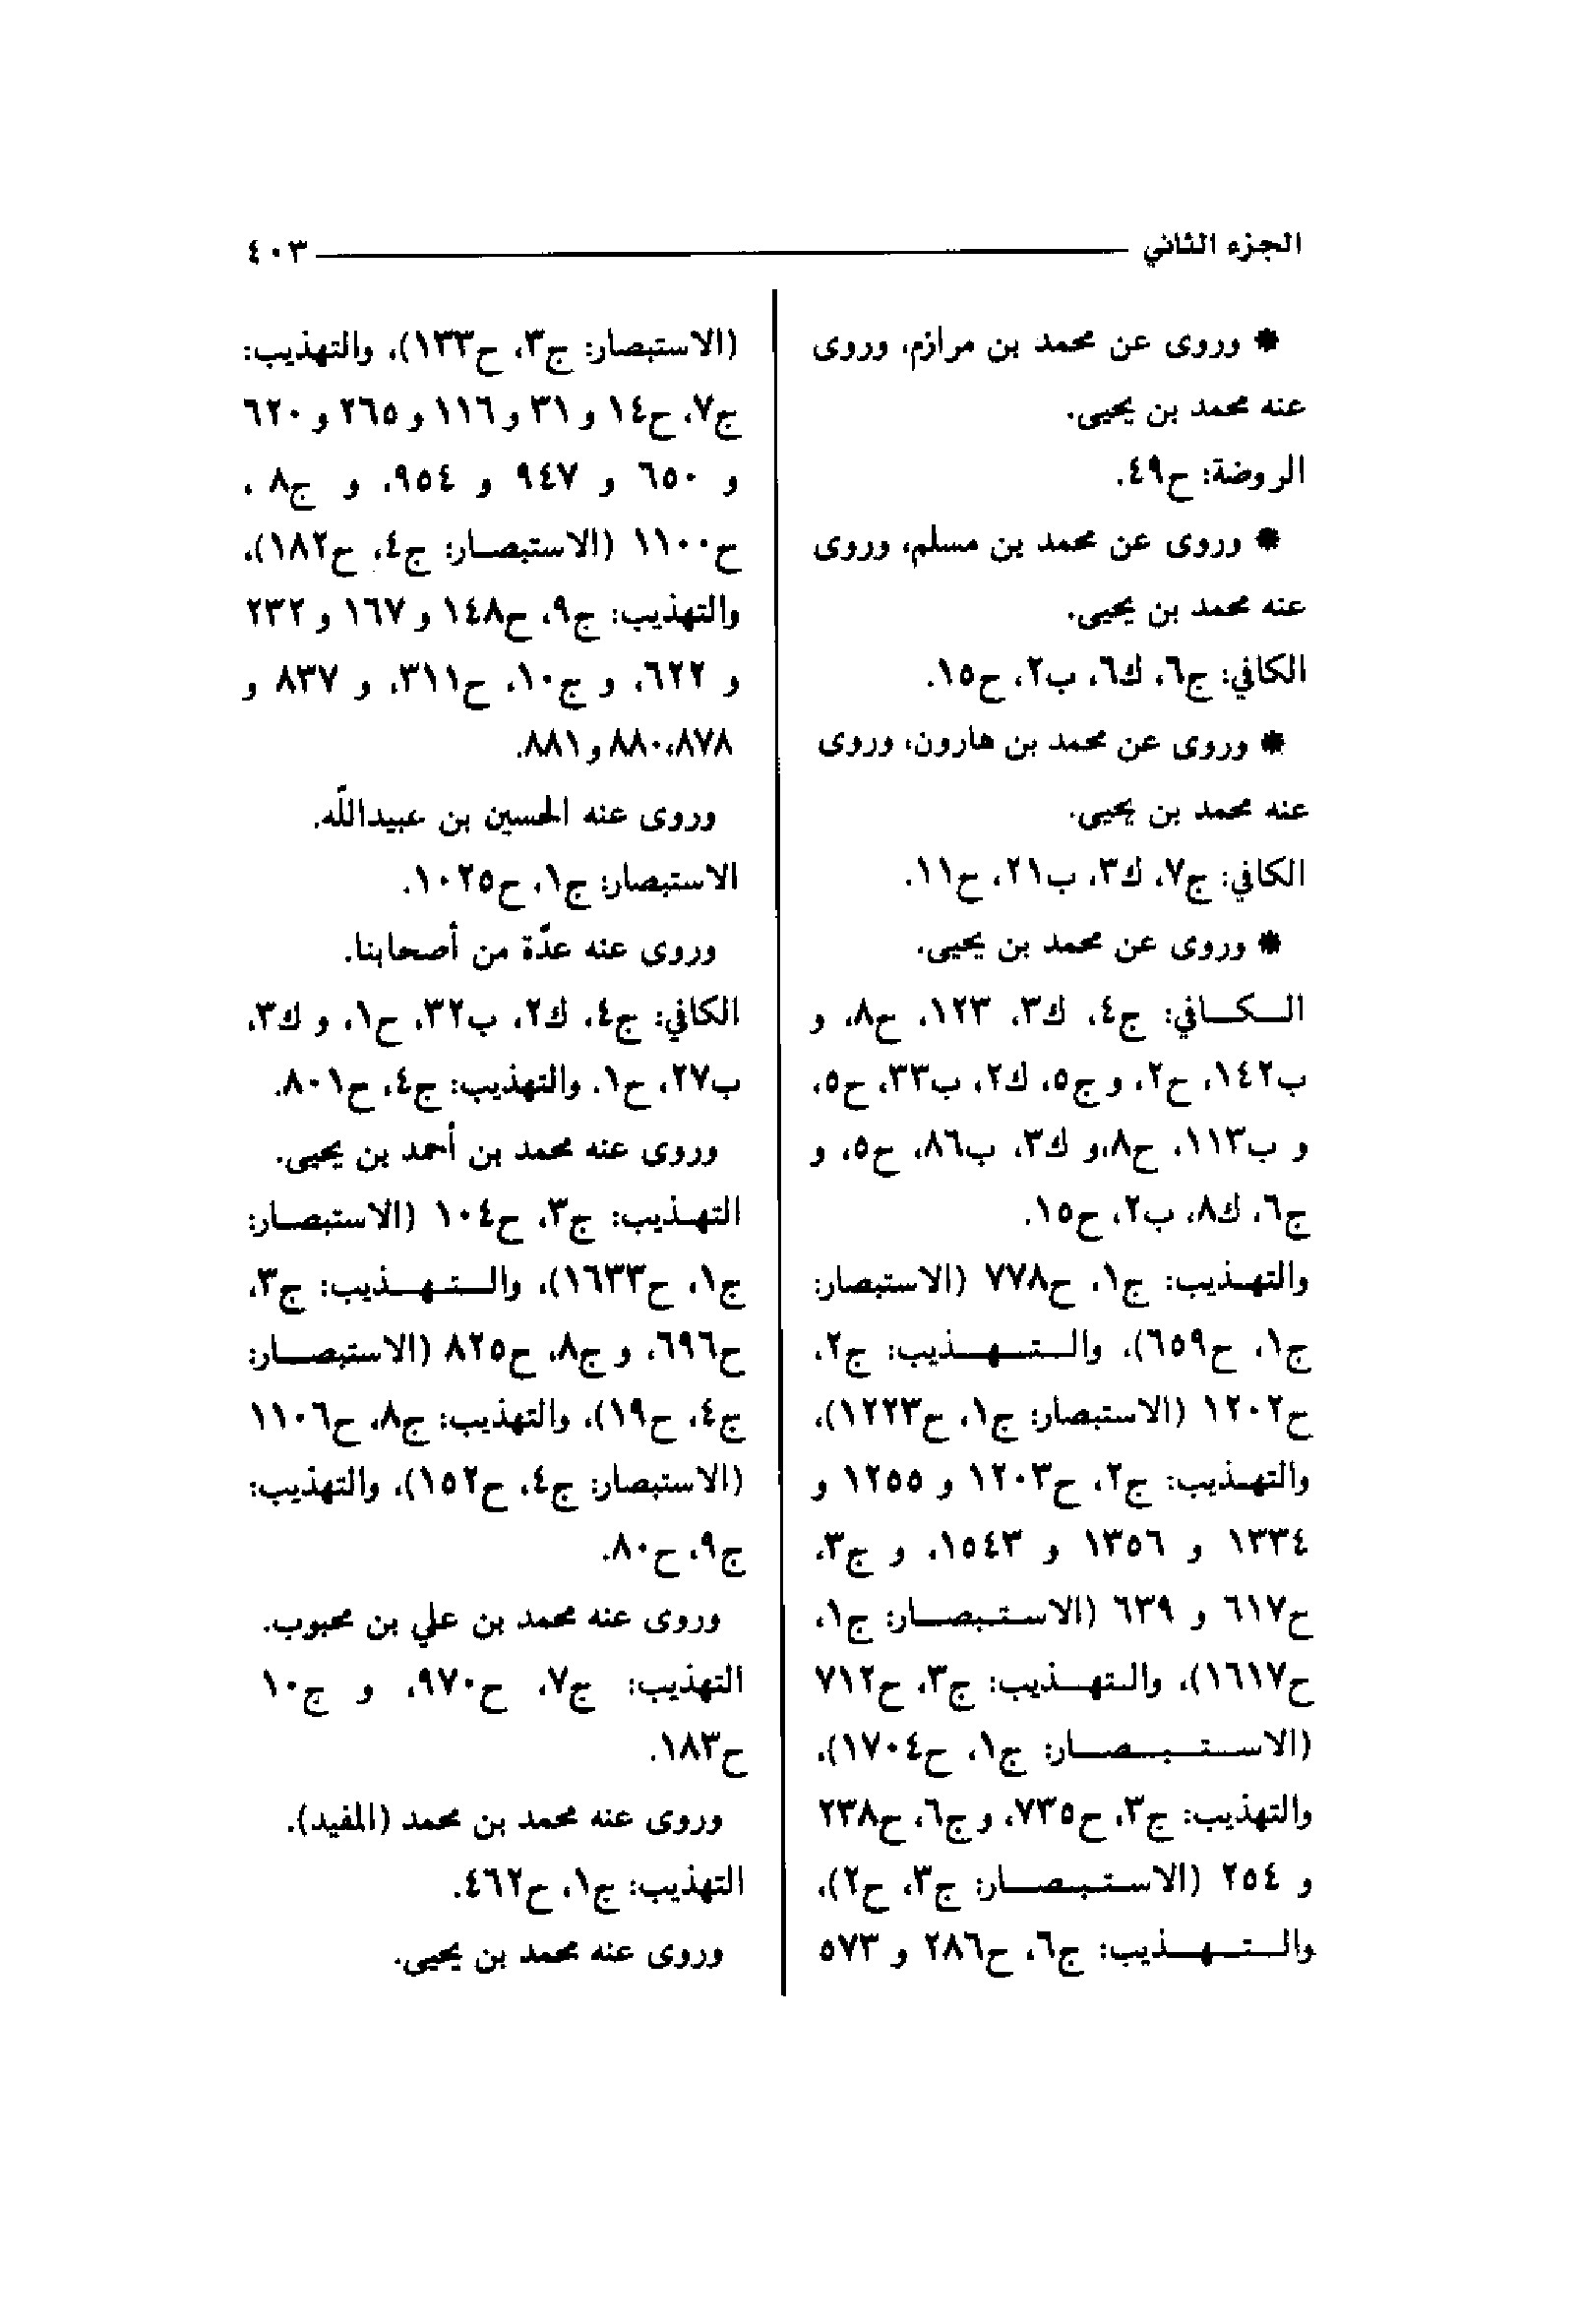 الجزء الثاني ٤٠٣
* وروى عن محمد بن مرازم، وروى
عنه محمد بن يحيى.
الروضة: ح٤٩.
* وروى عن محمد بن مسلم، وروى
عنه محمد بن يحيى.
الكافي: ج٦، ك٦، ب٢، ح١٥.
* وروى عن محمد بن هارون، وروى
عنه محمد بن يحيى.
الكافي: ج٧، ك٣، ب٢١، ح١١.
* وروى عن محمد بن يحيى.
الكافي: ج٤، ك٣، ١٢٣، ح٨، و
ب١٤٢، ح٢، و ج٥، ك٢، ب٣٣، ح٥،
و ب١١٣، ح٨،و ك٣، ب٨٦، ح٥، و
ج٦، ك٨، ب٢، ح١٥.
والتهذيب: ج١، ح٧٧٨ (الاستبصار:
ج١، ح٦٥٩)، والتهذيب: ج٢،
ح١٢٠٢ (الاستبصار: ج١، ح١٢٢٣)،
والتهذيب: ج٢، ح١٢٠٣ و ١٢٥٥ و
١٣٣٤ و ١٣٥٦ و ١٥٤٣، و ج٣،
ح٦١٧ و ٦٣٩ (الاستبصار: ج١،
ح١٦١٧)، والتهذيب: ج٣، ح٧١٢
(الاستبصار: ج١، ح١٧٠٤)،
والتهذيب: ج٣، ح٧٣٥، و ج٦، ح٢٣٨
و ٢٥٤ (الاستبصار: ج٣، ح٢)،
والتهذيب: ج٦، ح٢٨٦ و ٥٧٣
(الاستبصار: ج٣، ح١٣٣)، والتهذيب:
ج٧، ح١٤ و ٣١ و ١١٦ و ٢٦٥ و ٦٢٠
و ٦٥٠ و ٩٤٧ و ٩٥٤، و ج٨ ،
ح١١٠٠ (الاستبصار: ج٤، ح١٨٢)،
والتهذيب: ج٩، ح١٤٨ و ١٦٧ و ٢٣٢
و ٦٢٢، و ج١٠، ح٣١١، و ٨٣٧ و
٨٧٨، ٨٨٠ و ٨٨١.
وروى عنه الحسين بن عبيدالله.
الاستبصار: ج١، ح١٠٢٥.
وروى عنه عدّة من أصحابنا.
الكافي: ج٤، ك٢، ب٣٢، ح١، و ك٣،
ب٢٧، ح١. والتهذيب: ج٤، ح٨٠١.
وروى عنه محمد بن أحمد بن يحيى.
التهذيب: ج٣، ح١٠٤ (الاستبصار:
ج١، ح١٦٣٣)، والتهذيب: ج٣،
ح٦٩٦، و ج٨، ح٨٢٥ (الاستبصار:
ج٤، ح١٩)، والتهذيب: ج٨، ح١١٠٦
(الاستبصار: ج٤، ح١٥٢)، والتهذيب:
ج٩، ح٨٠.
وروى عنه محمد بن علي بن محبوب.
التهذيب: ج٧، ح٩٧٠، و ج١٠
ح١٨٣.
وروى عنه محمد بن محمد (المفيد).
التهذيب: ج١، ح٤٦٢.
وروى عنه محمد بن يحيى.